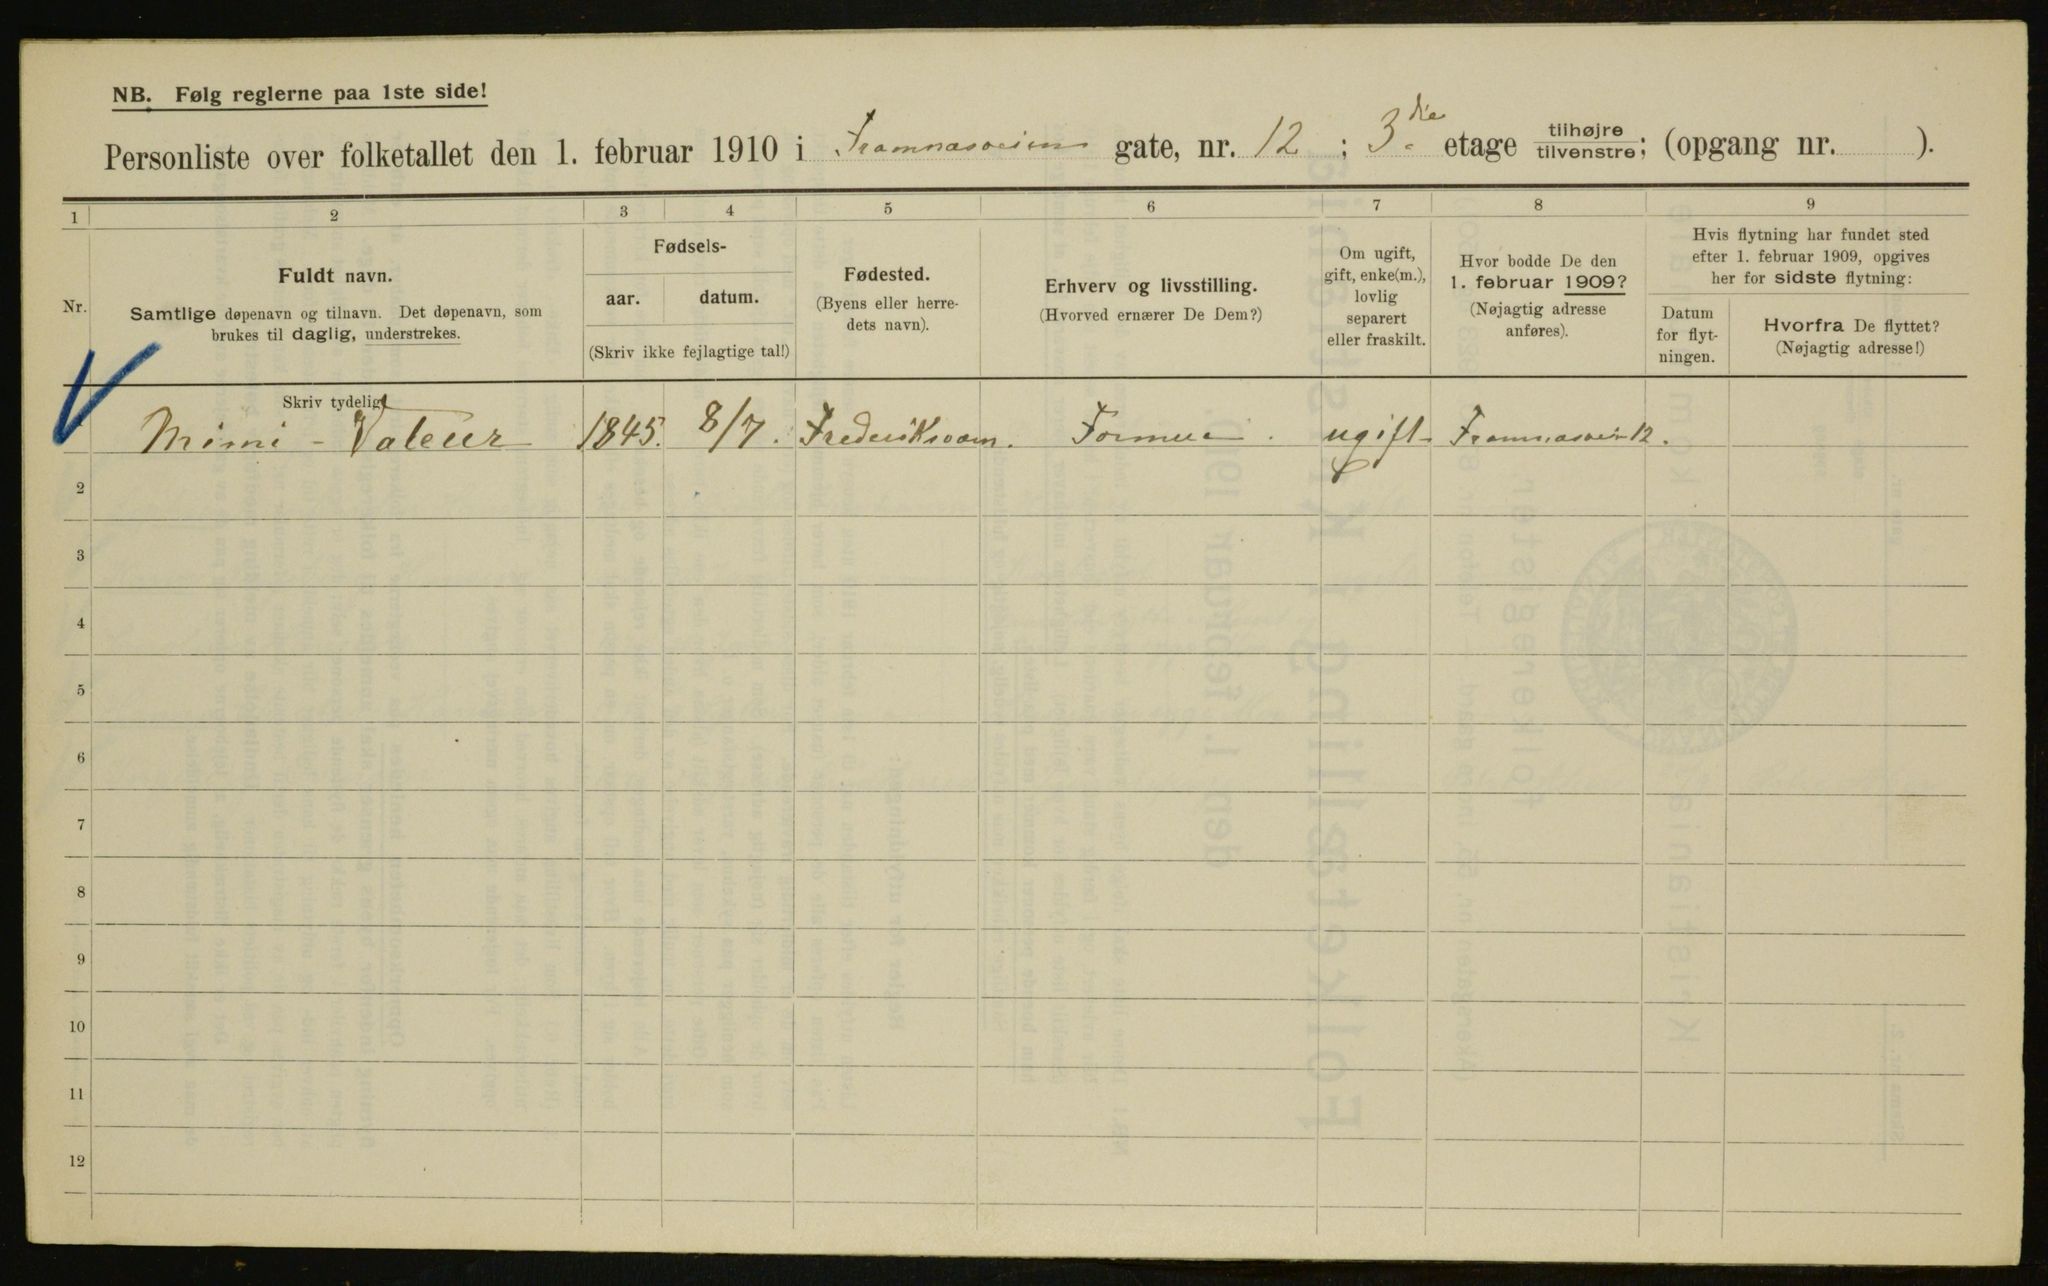 NB. Følg reglerne paa 1ste side!
Personliste over folketallet den 1. februar 1910 i Framnæsveien gate, nr. 12 ; 3die etage tilhøjre tilvenstre; (opgang nr. ).
1 2 3 4 5 6 7 8 9
Nr.
Fuldt navn.
Samtlige døpenavn og tilnavn. Det døpenavn, som
brukes til daglig, understrekes.
Fødsels-
aar. datum.
(Skriv ikke fejlagtige tal!)
Fødested.
(Byens eller herre-
dets navn).
Erhverv og livsstilling.
(Hvorved ernærer De Dem?)
Om ugift,
gift, enke(m.),
lovlig
separert
eller fraskilt.
Hvor bodde De den
1. februar 1909?
(Nøjagtig adresse
anføres).
Hvis flytning har fundet sted
efter 1. februar 1909, opgives
her for sidste flytning:
Datum
for flyt-
ningen.
Hvorfra De flyttet?
(Nøjagtig adresse!)
Skriv tydelig
Mimi - Valeur 1845. 8/7. Frederiksværn. Formue. ugift Framnæsvei 12.
2
3
4
5
6
7
8
9
10
11
12